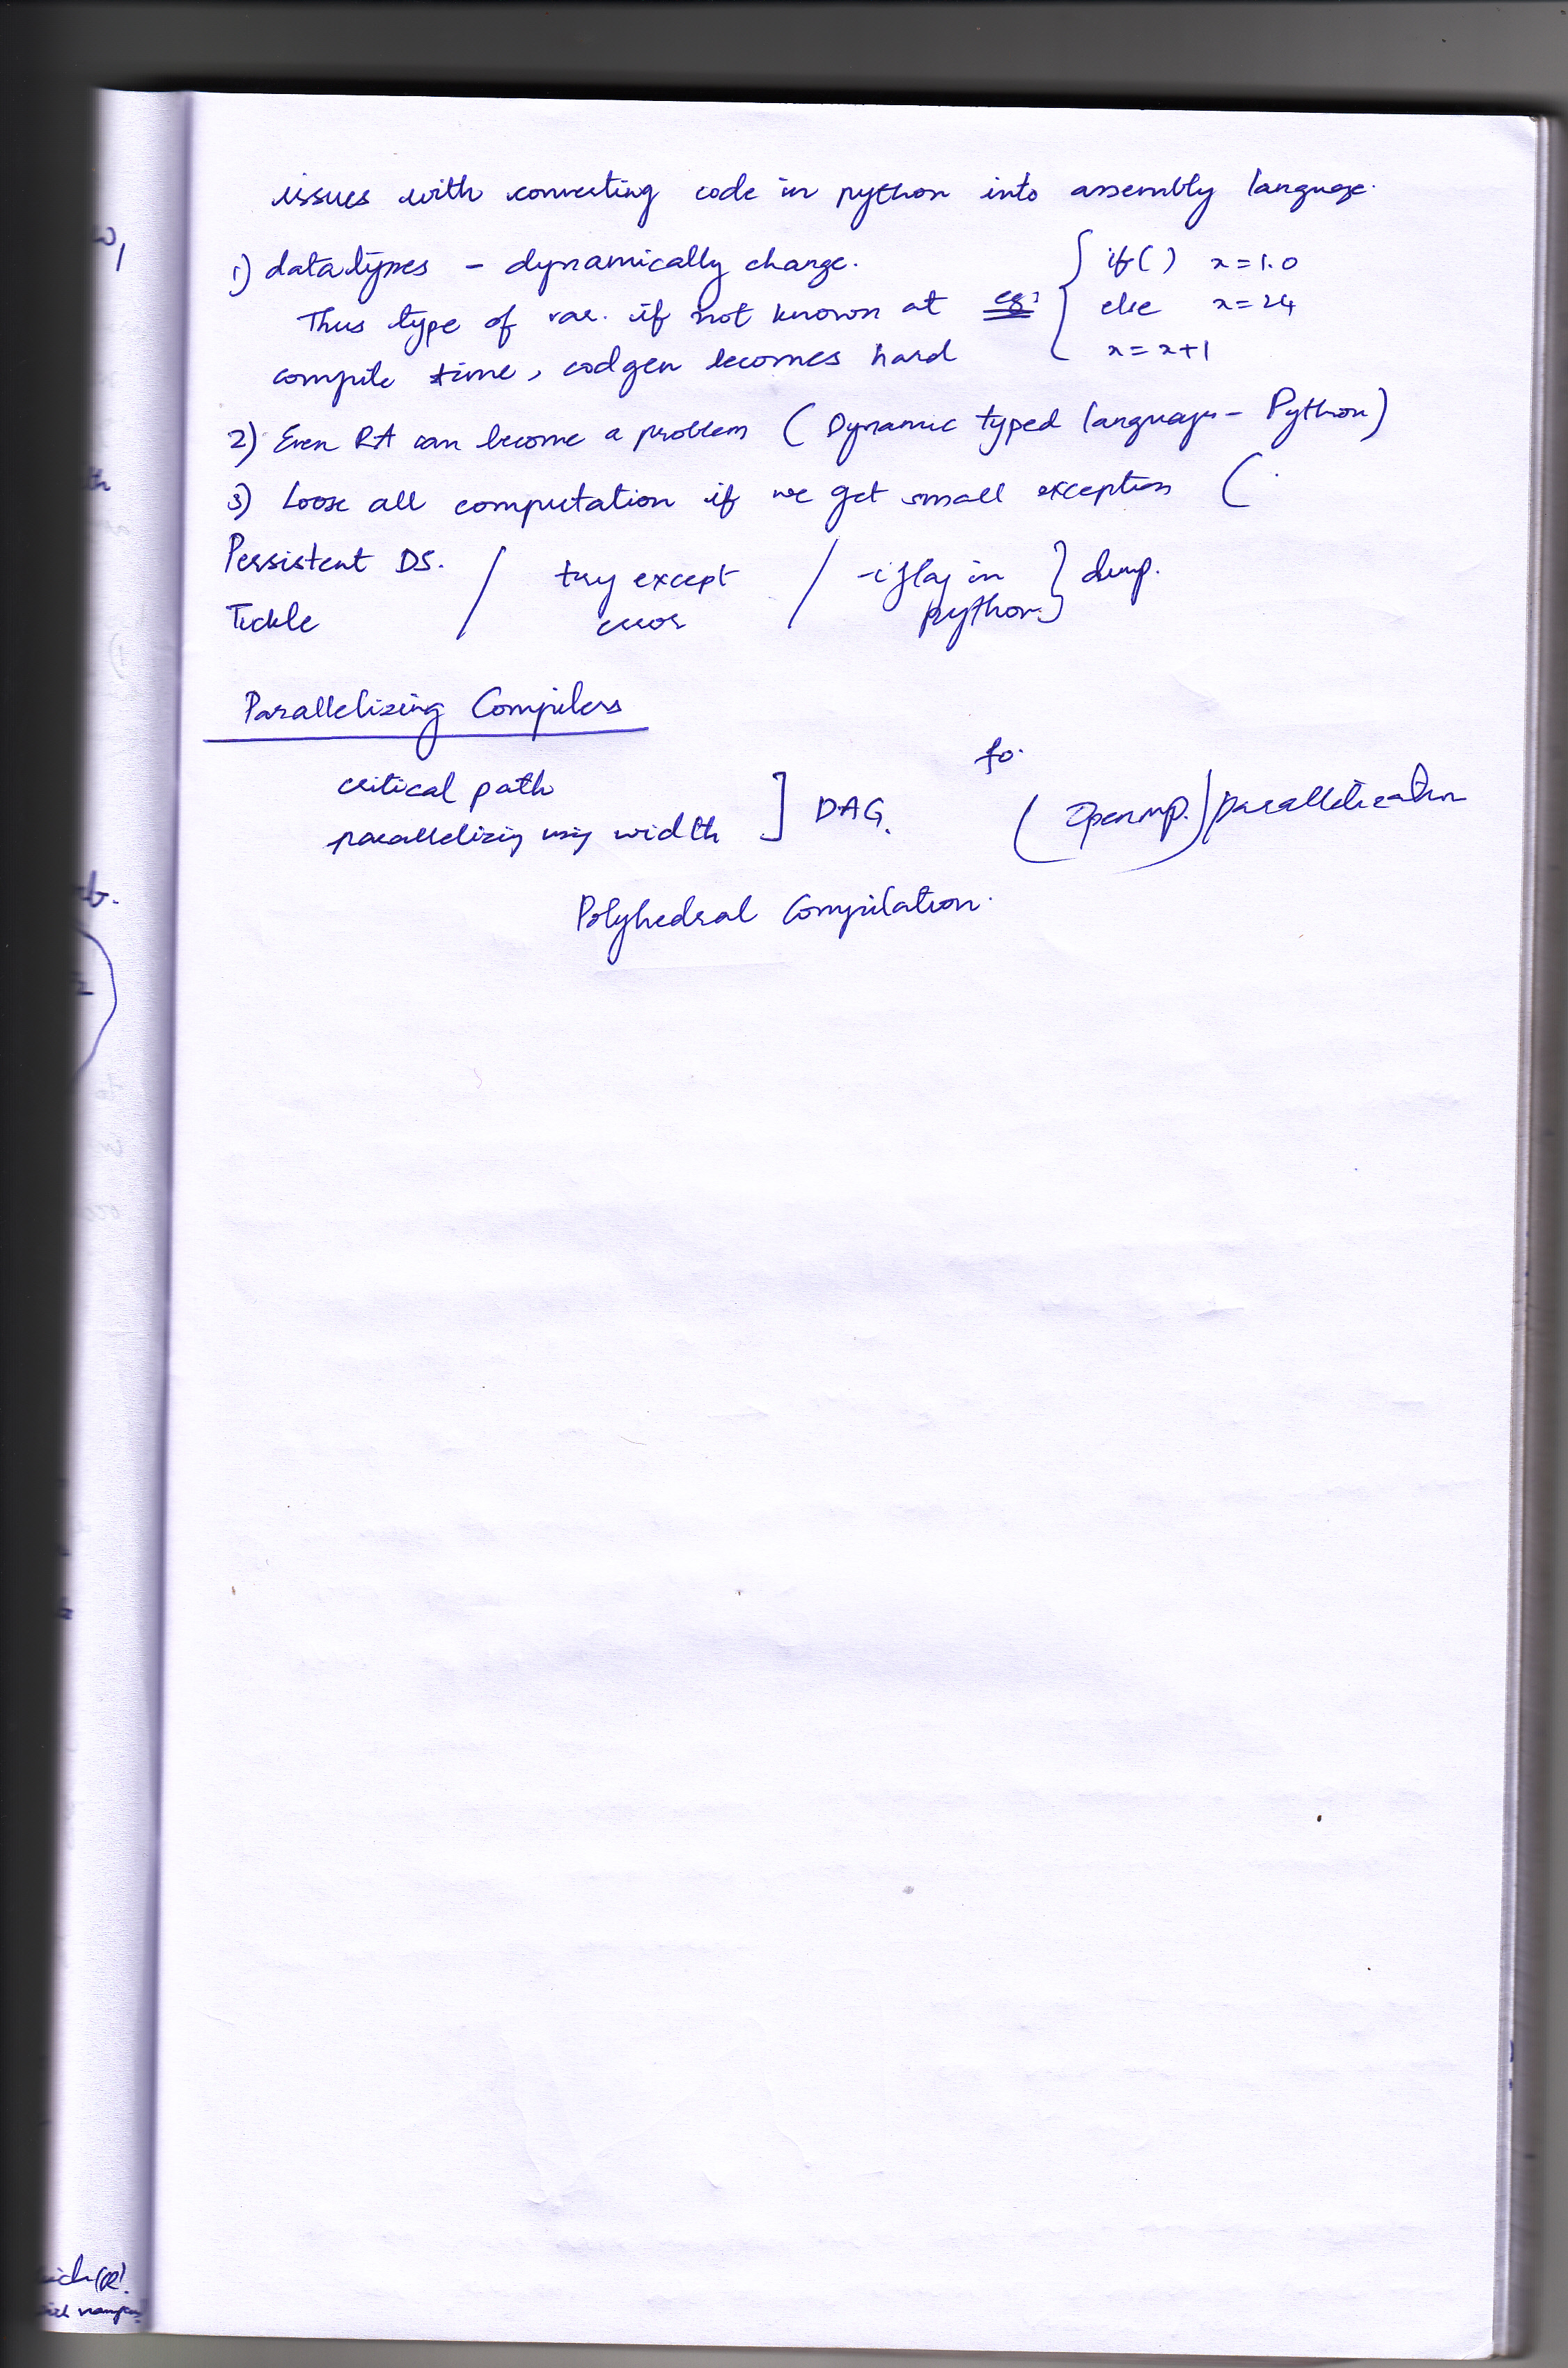 issues with converting code in python into assembly language.
1) datatypes - dynamically change.
Thus type of var. if not known at
compile time, codgen becomes hard
eg: { if( ) x=1.0
else x=24
x=x+1
2) Even RA can become a problem ( Dynamic typed language - Python)
3) Loose all computation if we get small exception (
Persistent DS. / try except / -i flag in } dump.
Tickle error python
Parallelizing Compilers
critical path
parallelizing using width ] DAG.
fo.
( Openmp. ) parallelization
Polyhedral Compilation.
w1
th